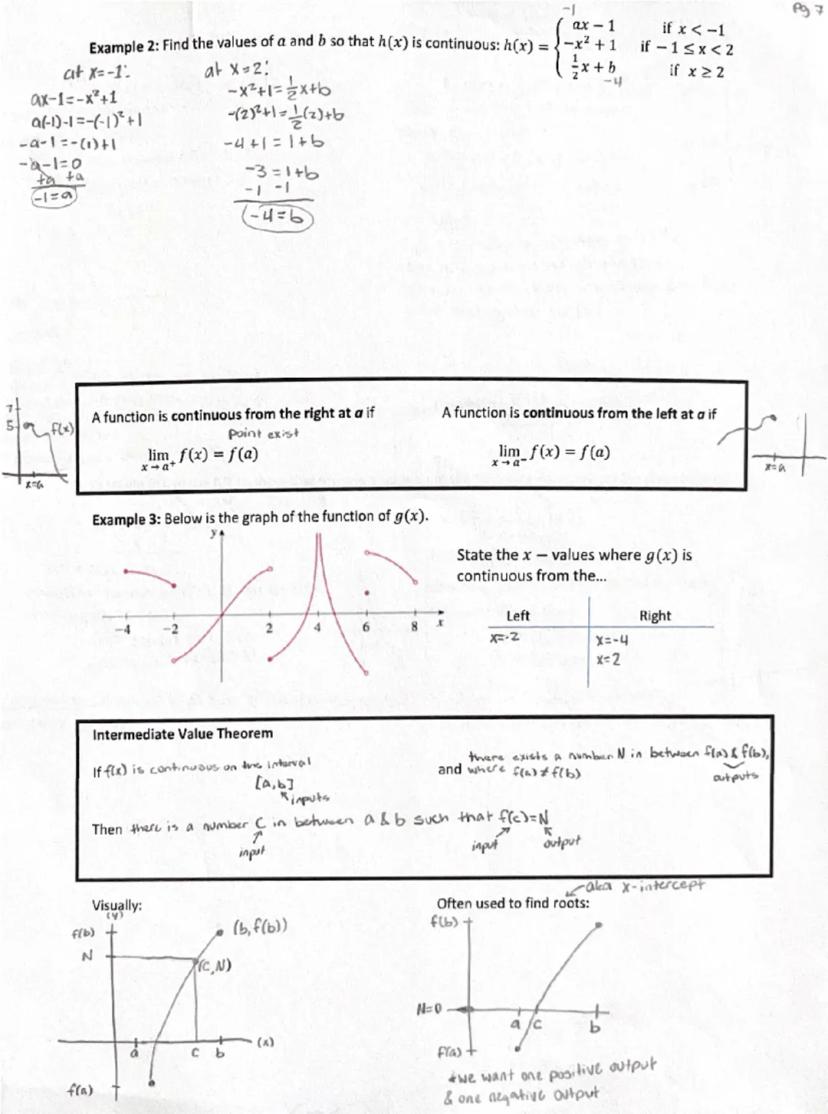 Pg 7
-1
Example 2: Find the values of a and b so that h(x) is continuous: h(x) = { ax − 1 if x < −1
−x² + 1 if − 1 ≤ x < 2
½x + b if x ≥ 2
-4
at x=-1:
ax-1=-x²+1
a(-1)-1=-(-1)²+1
-a-1=-(1)+1
-a-1=0
+a +a
-1=a
at x=2:
-x²+1=½x+b
-(2)²+1=½(2)+b
-4+1=1+b
-3=1+b
-1 -1
-4=b
7
5
f(x)
x=a
A function is continuous from the right at a if
Point exist
lim x→a⁺ f(x) = f(a)
A function is continuous from the left at a if
lim x→a⁻ f(x) = f(a)
x=a
Example 3: Below is the graph of the function of g(x).
y
-4 -2 2 4 6 8 x
State the x − values where g(x) is
continuous from the...
Left Right
x=-2 x=-4
x=2
Intermediate Value Theorem
If f(x) is continuous on the interval
[a,b]
inputs
there exists a number N in between f(a) & f(b),
and where f(a)≠f(b)
outputs
Then there is a number C in between a & b such that f(c)=N
input input output
Visually:
(y)
f(b)
N
(b, f(b))
(C, N)
a c b (x)
f(a)
aka x-intercept
Often used to find roots:
f(b)
N=0
a c b
f(a)
*we want one positive output
& one negative output